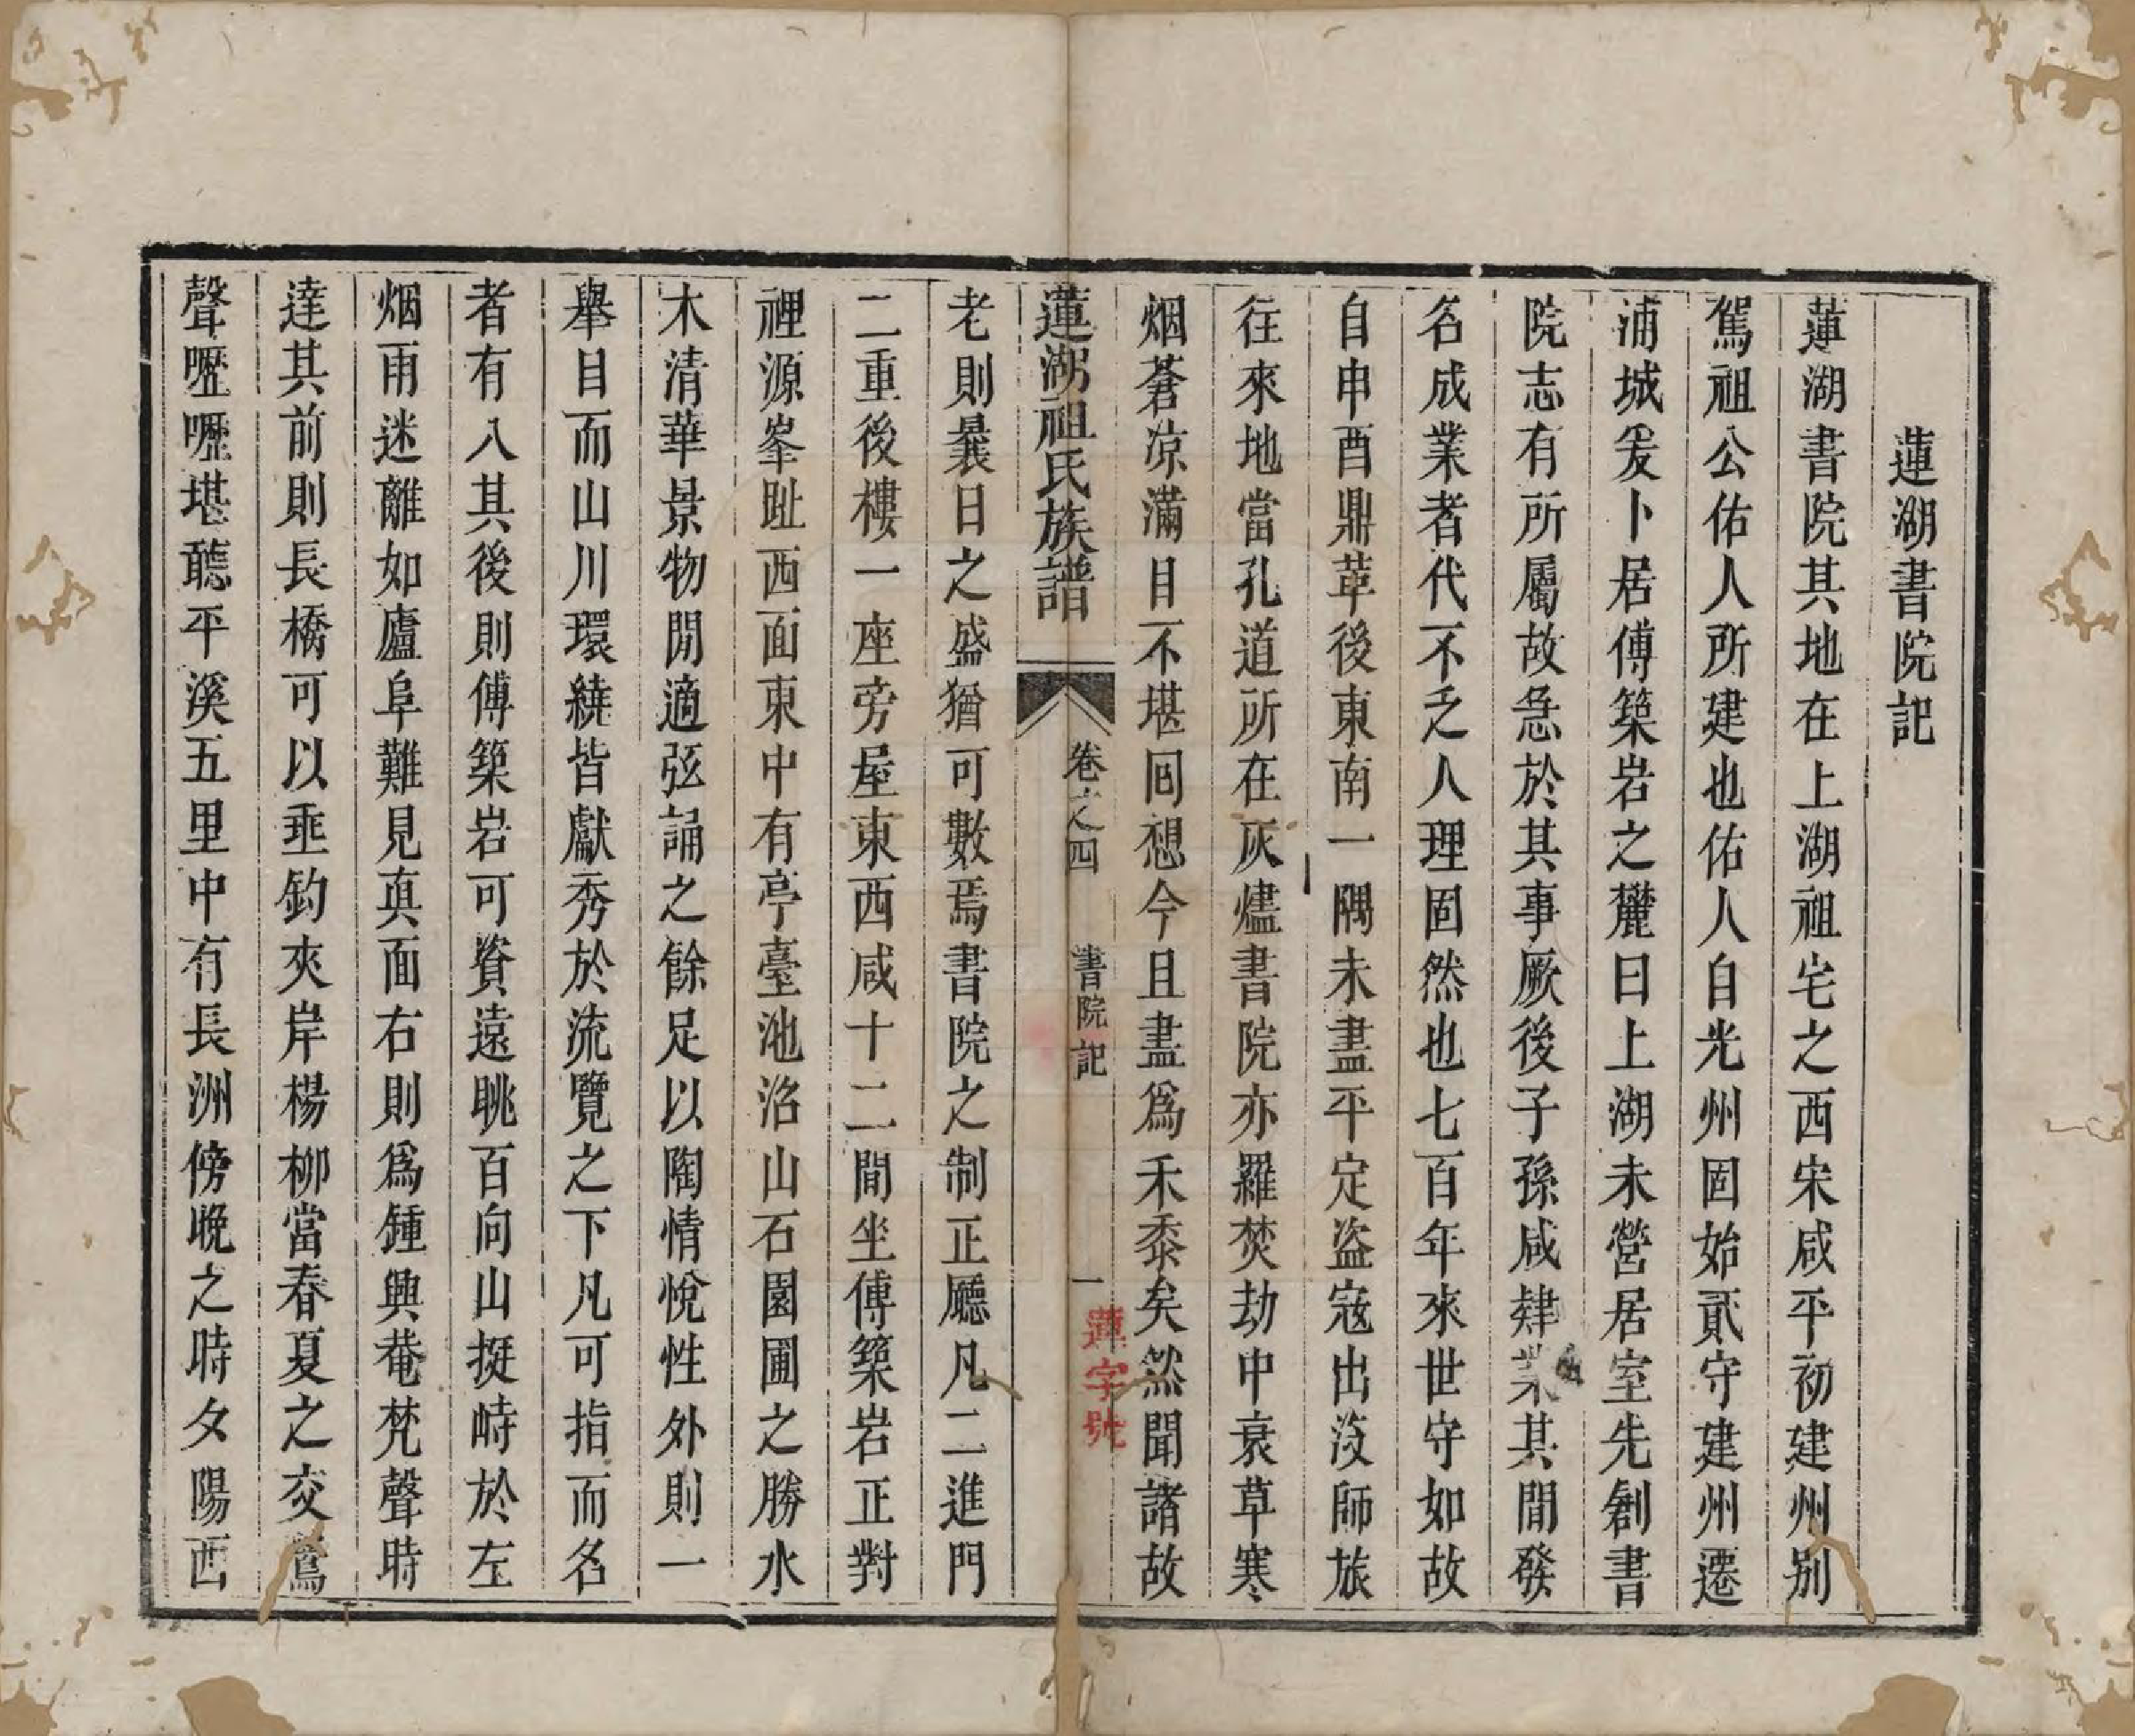 蓮湖書院記
蓮湖書院其地在上湖祖宅之西宋咸平初建州別
駕祖公佑人所建也佑人自光州固始貳守建州遷
浦城爰卜居傅築岩之麓曰上湖未營居室先創書
院志有所屬故急於其事厥後子孫咸肄業其間發
名成業者代不乏人理固然也七百年來世守如故
自申酉鼎革後東南一隅未盡平定盜寇出沒師旅
往來地當孔道所在灰燼書院亦羅焚劫中衰草寒
烟蒼凉滿目不堪回想今且盡為禾黍矣然聞諸故
蓮湖祖氏族譜
卷之四
書院記
一
蓮字號
老則曩日之盛猶可數焉書院之制正廳凡二進門
二重後樓一座旁屋東西咸十二間坐傅築岩正對
裡源峯趾西面東中有亭臺池沼山石園圃之勝水
木清華景物閒適弦誦之餘足以陶情悅性外則一
舉目而山川環繞皆獻秀於流覽之下凡可指而名
者有八其後則傅築岩可資遠眺百向山挺峙於左
烟雨迷離如廬阜難見真面右則為鍾興菴梵聲時
達其前則長橋可以垂釣夾岸楊柳當春夏之交鶯
聲嚦嚦堪聽平溪五里中有長洲傍晚之時夕陽西